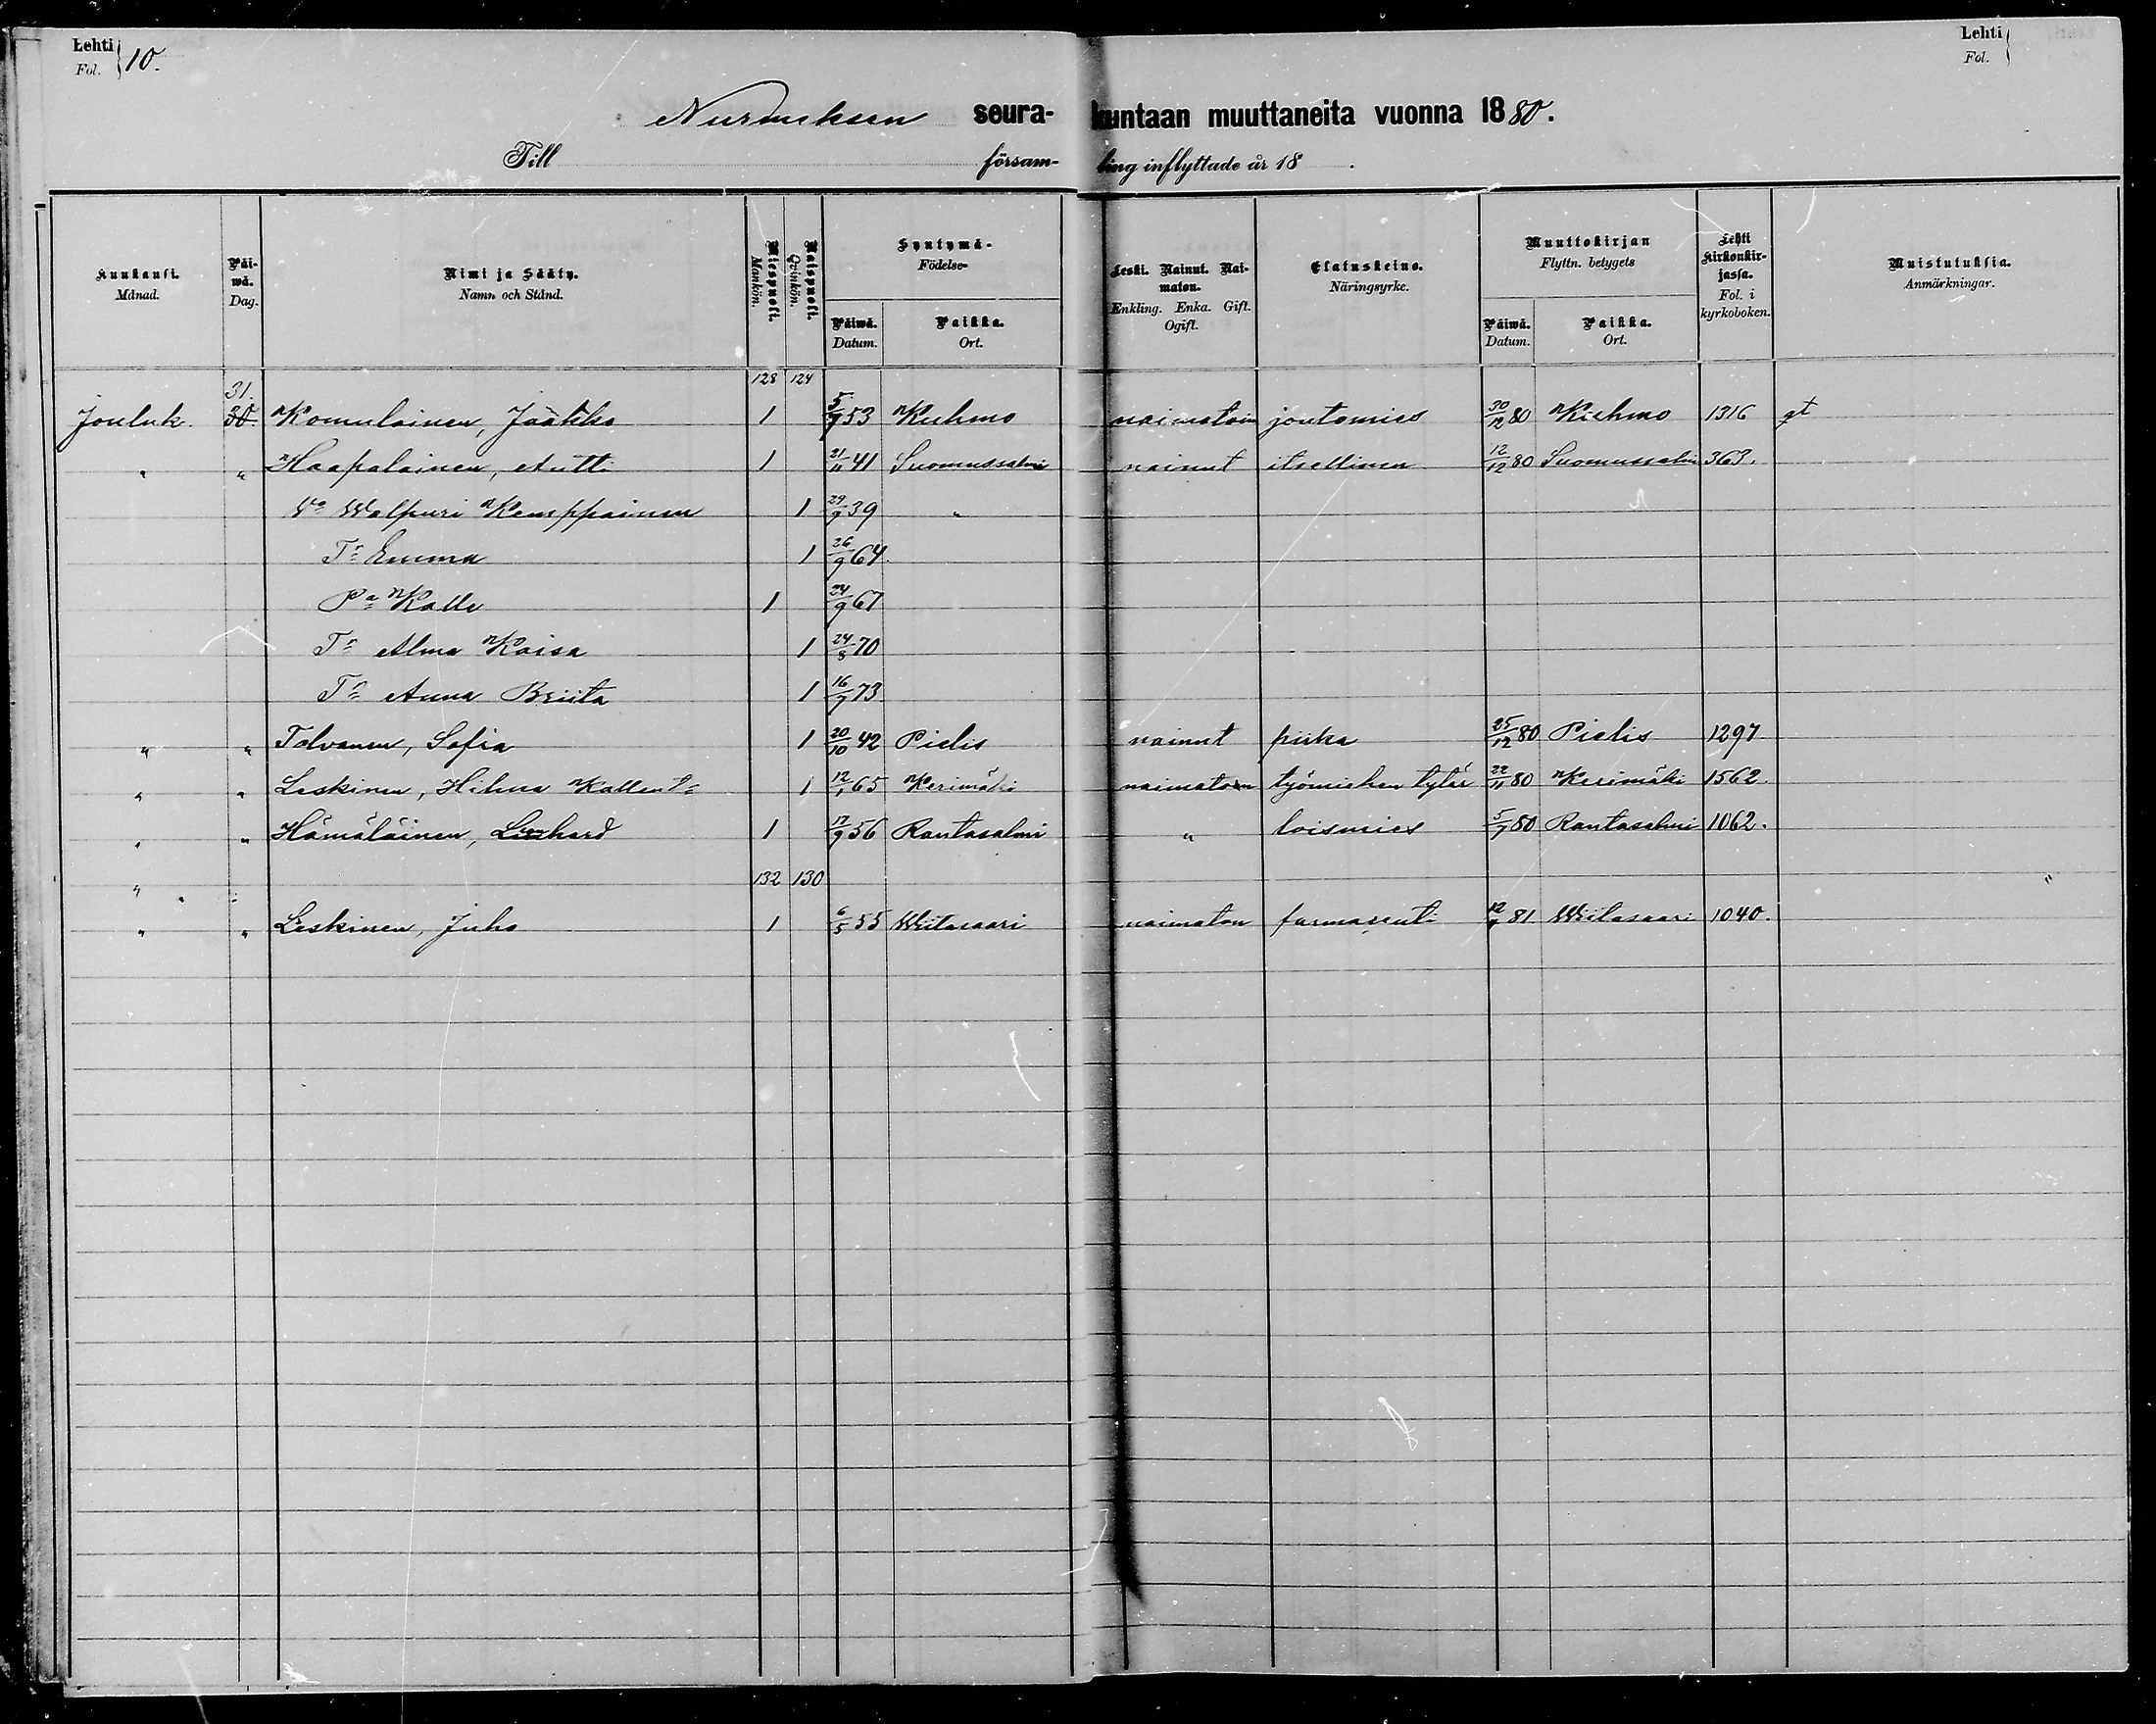 Lehti Fol. 10. Lehti Fol.
Nurmeksen seura- kuntaan muuttaneita vuonna 1880.
Till försam- ling inflyttade år 18 .
Kuukausi. Månad. Päi-wä. Dag. Nimi ja Sääty. Namn och Stånd. Miespuoli. Mankön. Naispuoli. Qvinkön. Syntymä- Födelse- Päiwä. Datum. Paikka. Ort. Leski. Nainut. Nai-maton. Enkling. Enka. Gift. Ogift. Elatuskeino. Näringsyrke. Muuttokirjan Flyttn. betygets Päiwä. Datum. Paikka. Ort. Lehti kirkonkir-jassa. Fol. i kyrkoboken. Muistutuksia. Anmärkningar.
31. 128 124
Jouluk. 30 Komulainen, Jaakko 1 5/7 53 Kuhmo naimatoin joutomies 30/12 80 Kuhmo 1316 gt
" " Haapalainen, Antti 1 21/11 41 Suomussalmi nainut itsellinen 12/12 80 Suomussalmi 363.
Va Walpuri Kemppainen 1 29/9 39 "
Tr Emma 1 26/9 64.
Pa Kalle 1 24/9 67
Tr Alma Kaisa 1 24/8 70
Tr Anna Briita 1 16/7 73.
" " Tolvanen, Sofia 1 20/10 42 Pielis nainut piika 25/12 80 Pielis 1297
" " Leskinen, Hilma Kallent. 1 12/1 65 Kerimäki naimaton työmiehen tytär 22/11 80 Kerimäki 1562.
" " Hämäläinen, Lenhard 1 17/9 56 Rantasalmi " loismies 5/7 80 Rantasalmi 1062.
" " 132 130 "
" " Leskinen, Juho 1 6/5 55 Wiitasaari naimaton farmaseuti 12/ 81 Wiitasaari 1040.